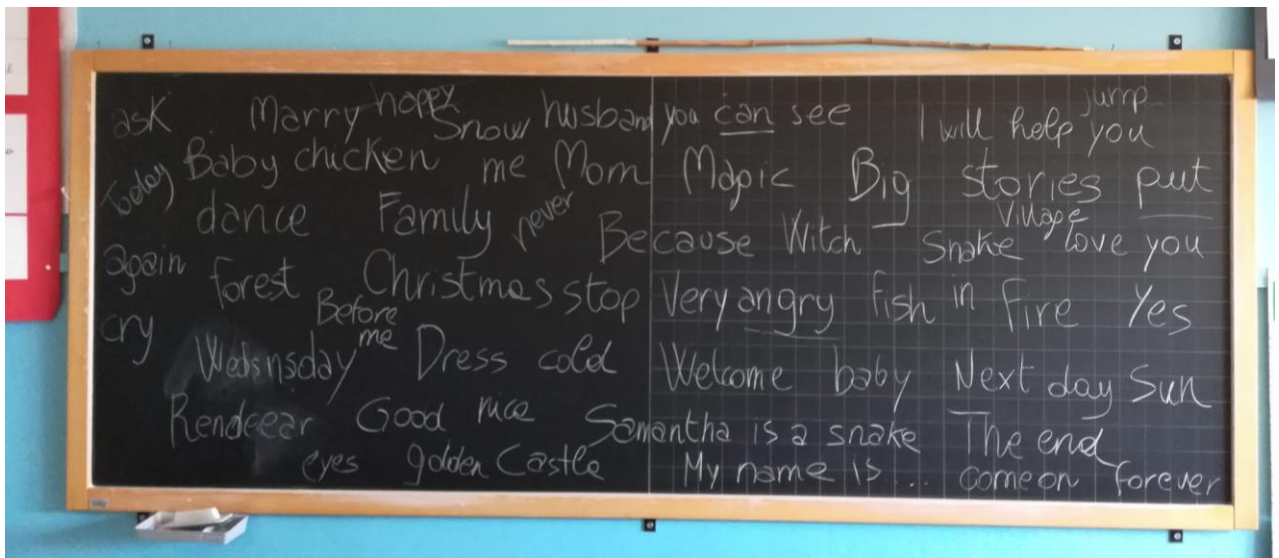 ask Marry happy Snow husband you can see I will help you jump
Today Baby chicken me Mom Magic Big stories put
dance Family never Because Witch Snake Village love you
again forest Christmas stop Very angry Fish in Fire Yes
cry Before me Wedsnsday Dress cold Welcome baby Next day Sun
Rendeear Good nice Samantha is a snake The end
eyes golden Castle My name is... come on forever